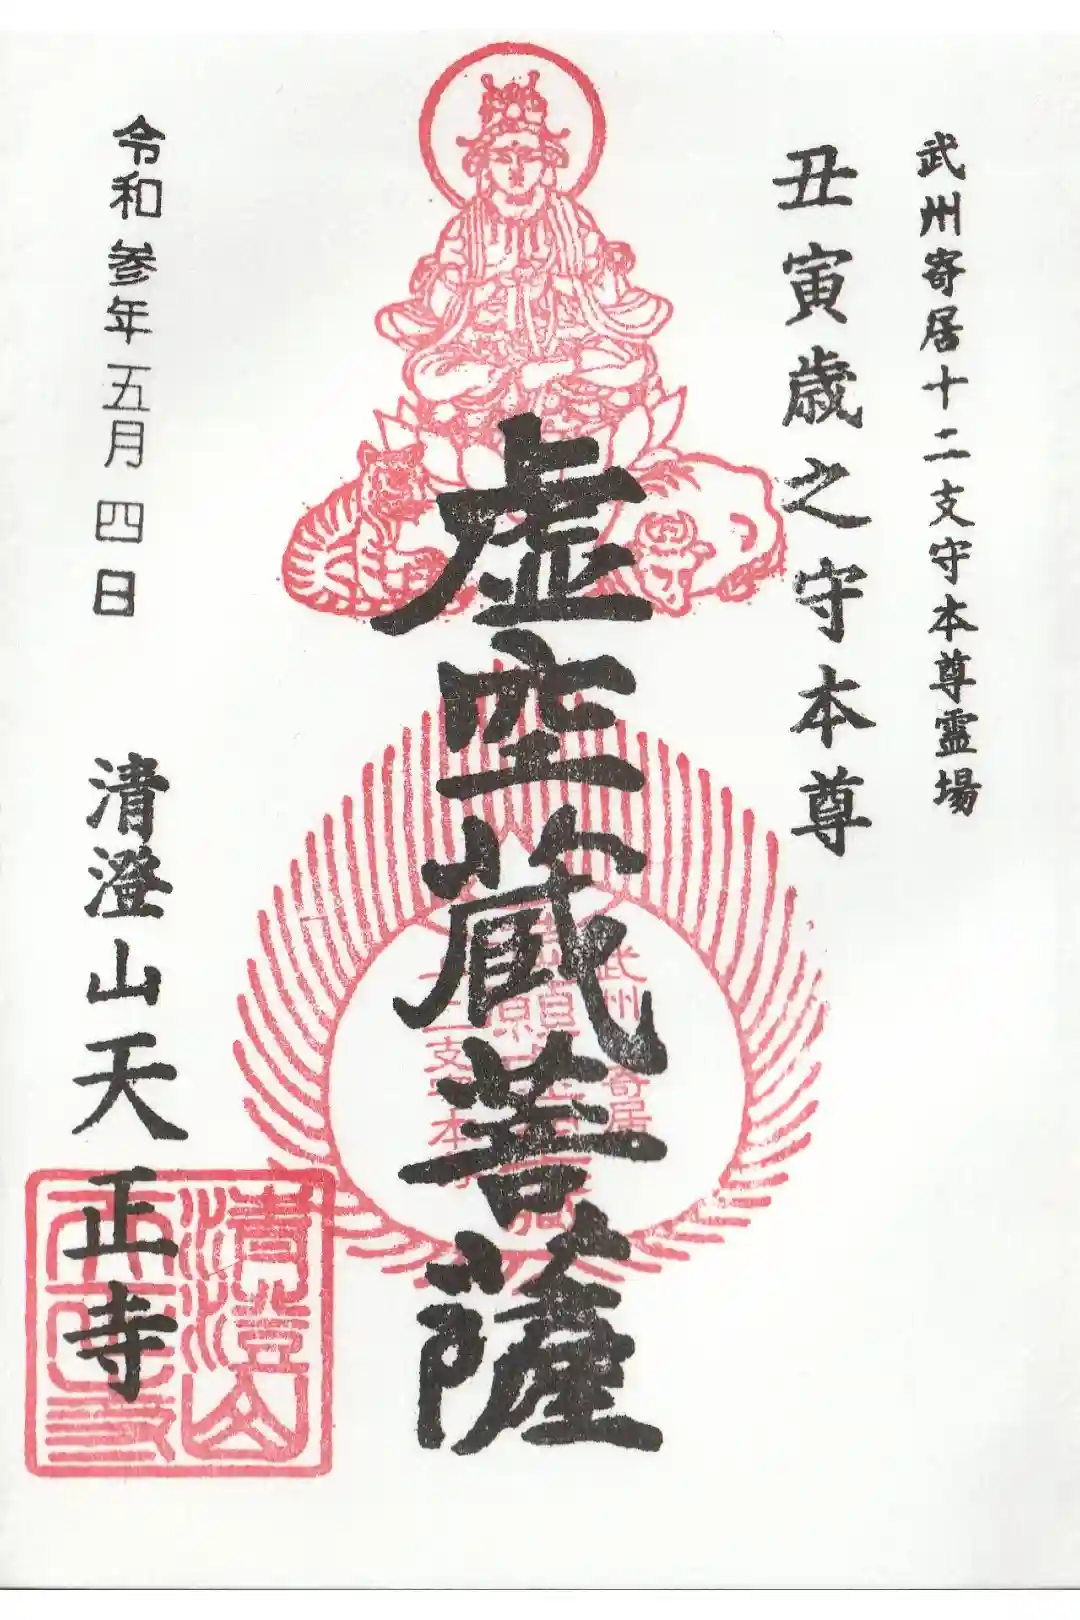 武州寄居十二支守本尊霊場
丑寅歳之守本尊
虚空蔵菩薩
武州寄居
十二支守本尊
令和参年五月四日
清澄山天正寺
清澄山
天正寺